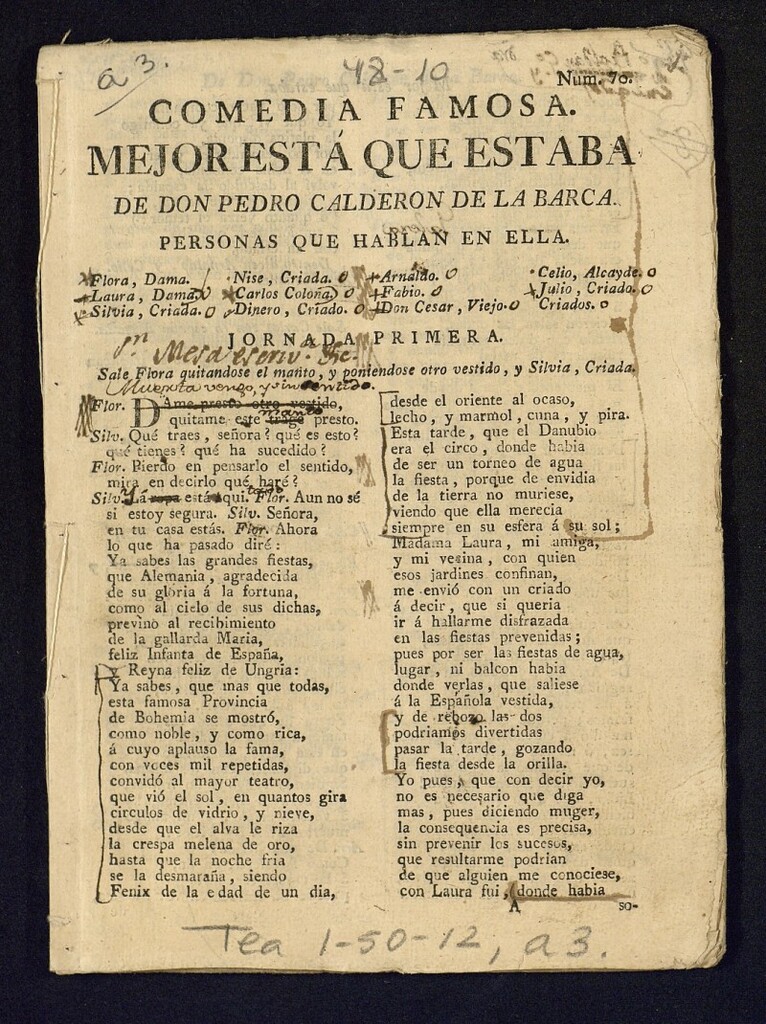 a 3.
48-10
Num. 70.
COMEDIA FAMOSA.
MEJOR ESTÁ QUE ESTABA
DE DON PEDRO CALDERON DE LA BARCA.
PERSONAS QUE HABLAN EN ELLA.
Flora, Dama. Nise, Criada. Arnaldo. Celio, Alcayde.
Laura, Dama. Carlos Coloña. Fabio. Julio, Criado.
Silvia, Criada. Dinero, Criado. Don Cesar, Viejo. Criados.
JORNADA PRIMERA.
Mesa escriv.
Sale Flora quitandose el manto, y poniendose otro vestido, y Silvia, Criada.
Muerta vengo, y sin sentido.
Flor. DAme presto otro vestido,
manto
quitame este trage presto.
Silv. Qué traes, señora? qué es esto?
qué tienes? qué ha sucedido?
Flor. Pierdo en pensarlo el sentido,
mira en decirlo qué haré?
Silv. La ropa está aqui. Flor. Aun no sé
si estoy segura. Silv. Señora,
en tu casa estás. Flor. Ahora
lo que ha pasado diré:
Ya sabes las grandes fiestas,
que Alemania, agradecida
de su gloria á la fortuna,
como al cielo de sus dichas,
previno al recibimiento
de la gallarda Maria,
feliz Infanta de España,
y Reyna feliz de Ungria:
Ya sabes, que mas que todas,
esta famosa Provincia
de Bohemia se mostró,
como noble, y como rica,
á cuyo aplauso la fama,
con voces mil repetidas,
convidó al mayor teatro,
que vió el sol, en quantos gira
circulos de vidrio, y nieve,
desde que el alva le riza
la crespa melena de oro,
hasta que la noche fria
se la desmaraña, siendo
Fenix de la edad de un dia,
desde el oriente al ocaso,
lecho, y marmol, cuna, y pira.
Esta tarde, que el Danubio
era el circo, donde habia
de ser un torneo de agua
la fiesta, porque de envidia
de la tierra no muriese,
viendo que ella merecia
siempre en su esfera á su sol;
Madama Laura, mi amiga,
y mi vecina, con quien
esos jardines confinan,
me envió con un criado
á decir, que si queria
ir á hallarme disfrazada
en las fiestas prevenidas;
pues por ser las fiestas de agua,
lugar, ni balcon habia
donde verlas, que saliese
á la Española vestida,
y de rebozo las dos
podriamos divertidas
pasar la tarde, gozando
la fiesta desde la orilla.
Yo pues, que con decir yo,
no es necesario que diga
mas, pues diciendo muger,
la consequencia es precisa,
sin prevenir los sucesos,
que resultarme podrian
de que alguien me conociese,
con Laura fui, donde habia
A
so-
Tea 1-50-12, a3.